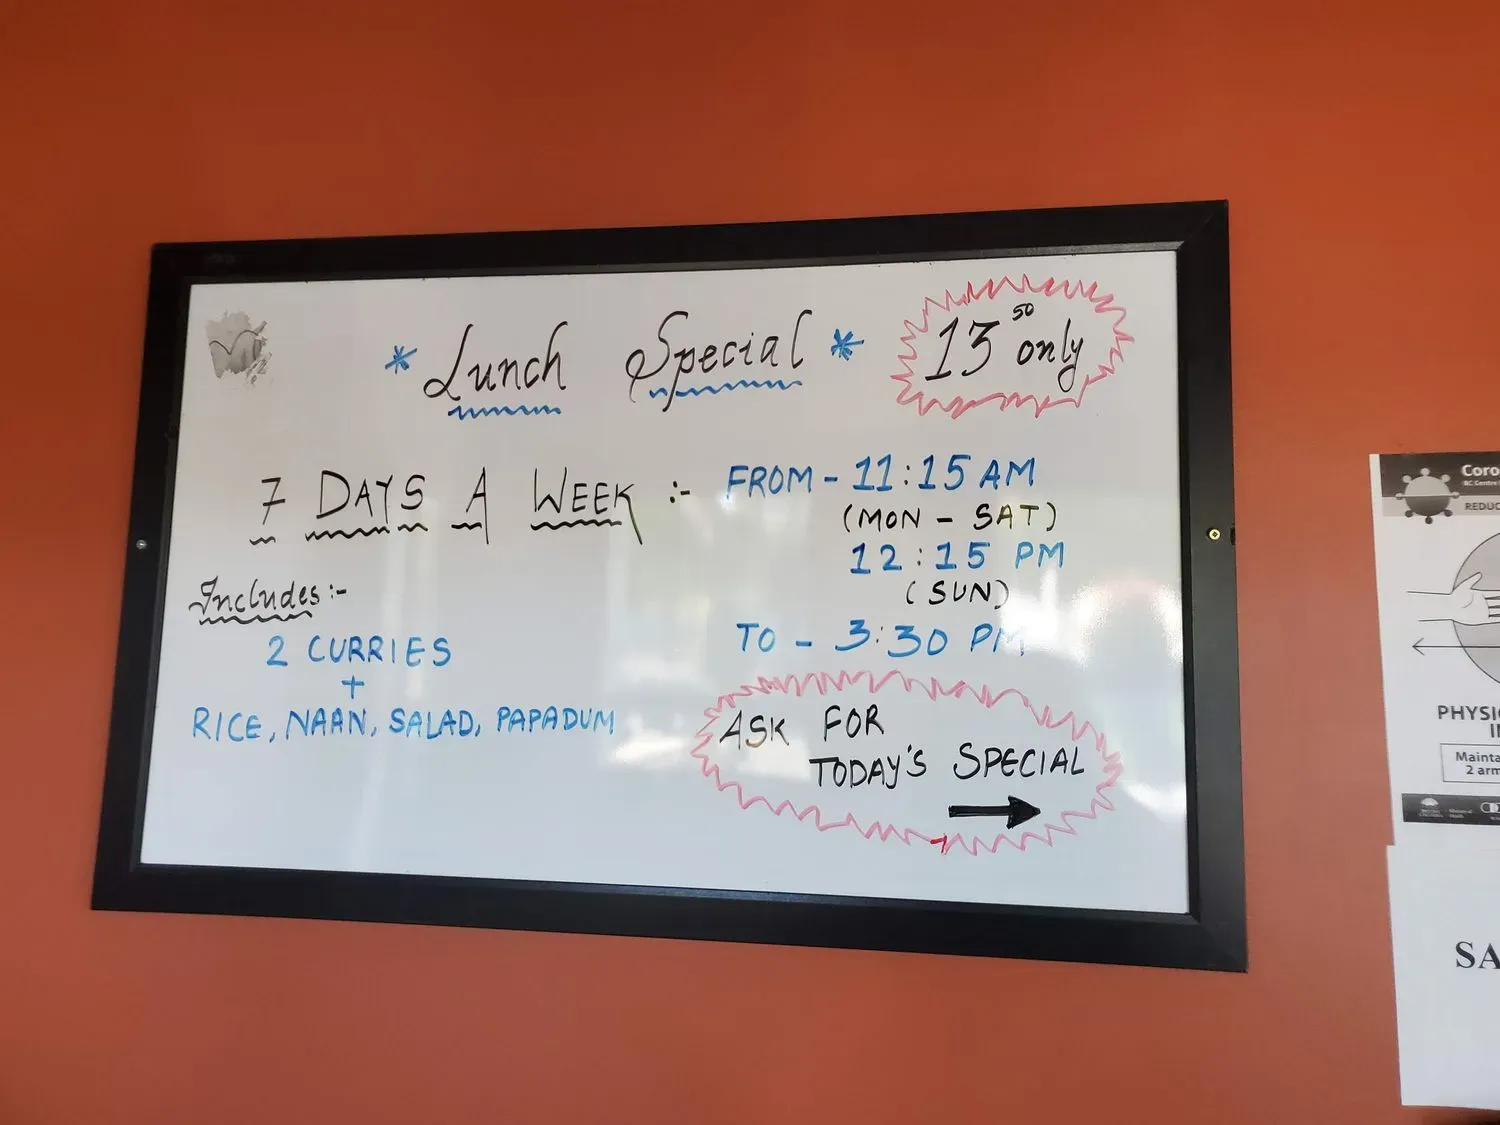 * Lunch Special *
13 50 only
7 DAYS A WEEK :-
FROM - 11:15 AM
(MON - SAT)
12:15 PM
(SUN)
TO - 3:30 PM
Includes :-
2 CURRIES
+
RICE, NAAN, SALAD, PAPADUM
ASK FOR
TODAY'S SPECIAL
Coro
BC Centre
REDUC
PHYSIC
IN
Mainta
2 arm
SA